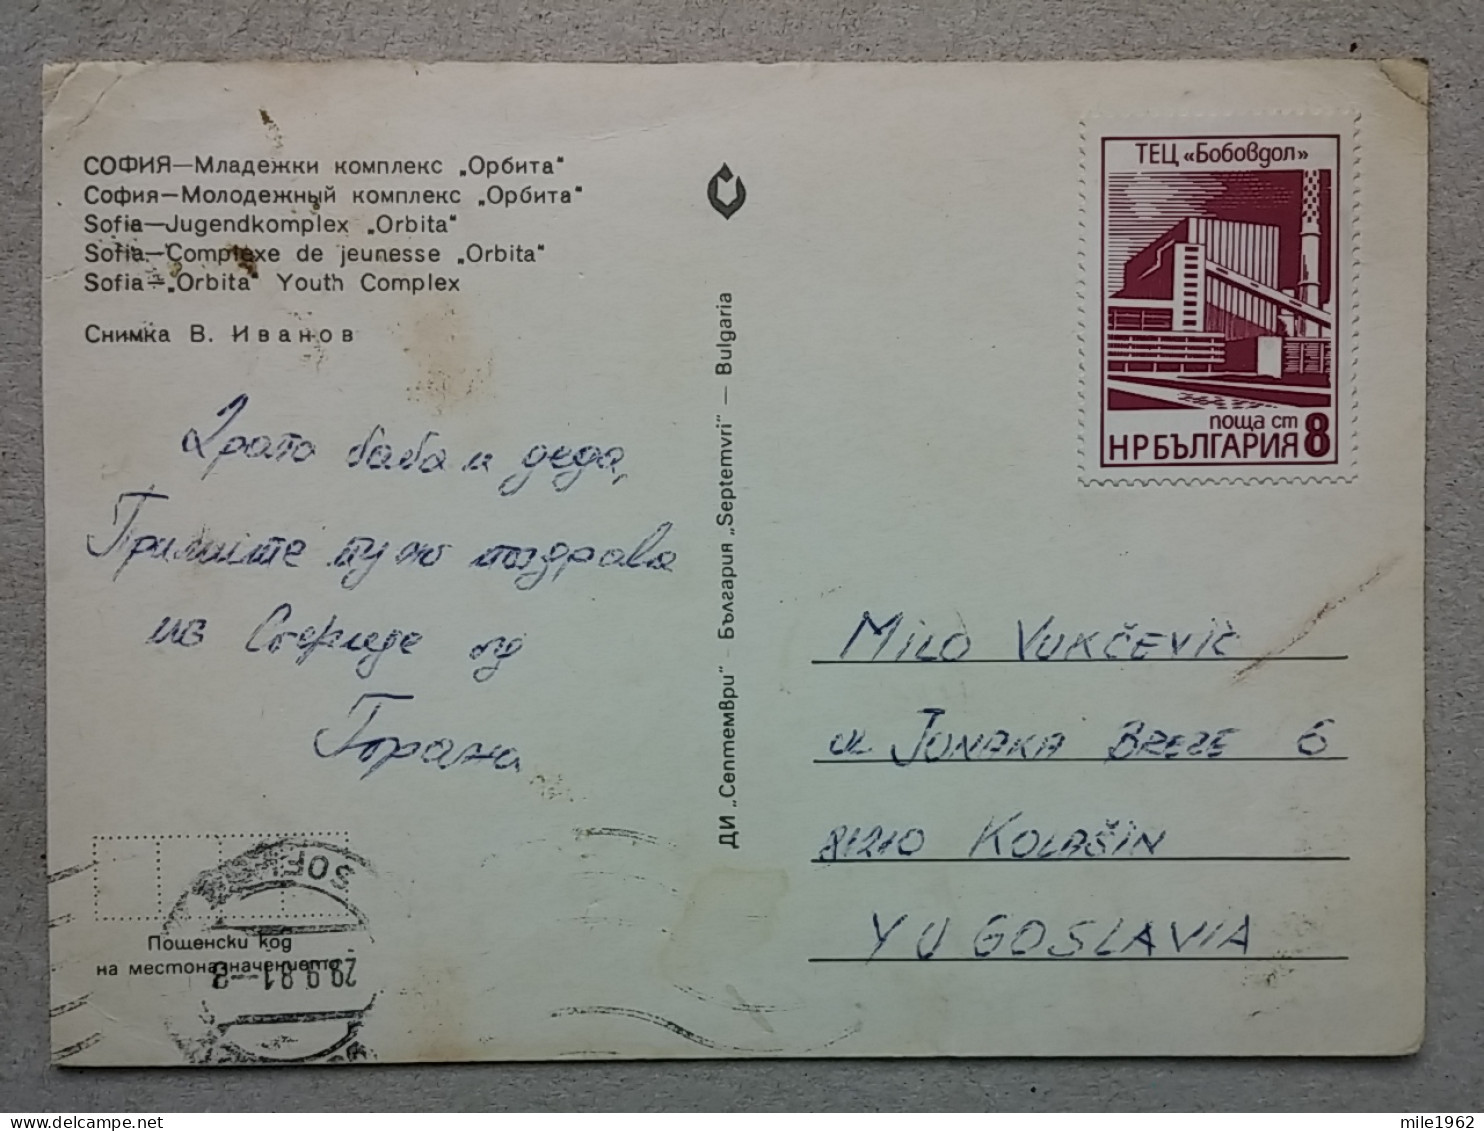 СОФИЯ—Младежки комплекс „Орбита“
София—Молодежный комплекс „Орбита“
Sofia—Jugendkomplex „Orbita“
Sofia—Complexe de jeunesse „Orbita“
Sofia—„Orbita“ Youth Complex
Снимка В. Иванов
баба и деда,
Примите пуно поздрава
из Софије од
Горана
Пощенски код
на местоназначението
SOFI
29.9.81-8
ДИ „Септември“ — България „Septemvri“ — Bulgaria
ТЕЦ «Бобовдол»
поща ст 8
НРБЪЛГАРИЯ
MILO VUKČEVIĆ
ul JUNAKA BREZE 6
81210 KOLAŠIN
YUGOSLAVIA
mile1962